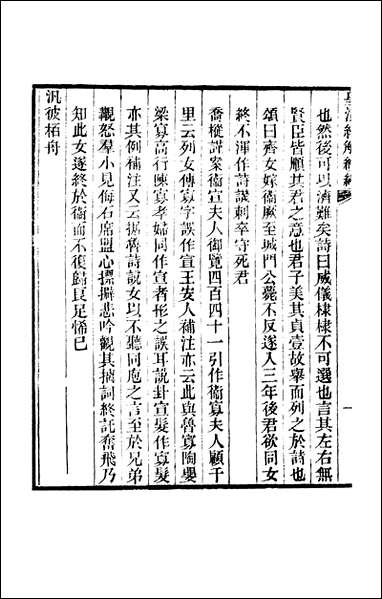 皇清經解續編
一
也然後可以濟難矣詩曰威儀棣棣不可選也言其左右無
賢臣皆順其君之意也君子美其貞壹故舉而列之於詩也
頌曰齊女嫁衞厥至城門公薨不反遂入三年後君欲同女
終不渾作詩譏刺卒守死君
喬樅謹案衞宣夫人御覽四百四十一引作衞寡夫人顧千
里云列女傳寡字誤作宣王安人補注亦云此與魯寡陶嬰
梁寡高行陳寡孝婦同作宣者形之誤耳說卦宣髮作寡髮
亦其例補注又云據魯詩說女以不聽同庖之言至於兄弟
覯怒羣小見侮石席盟心擗摽悲吟觀其摛詞終託奮飛乃
知此女遂終於衞而不復歸艮足悕已
汎彼栢舟